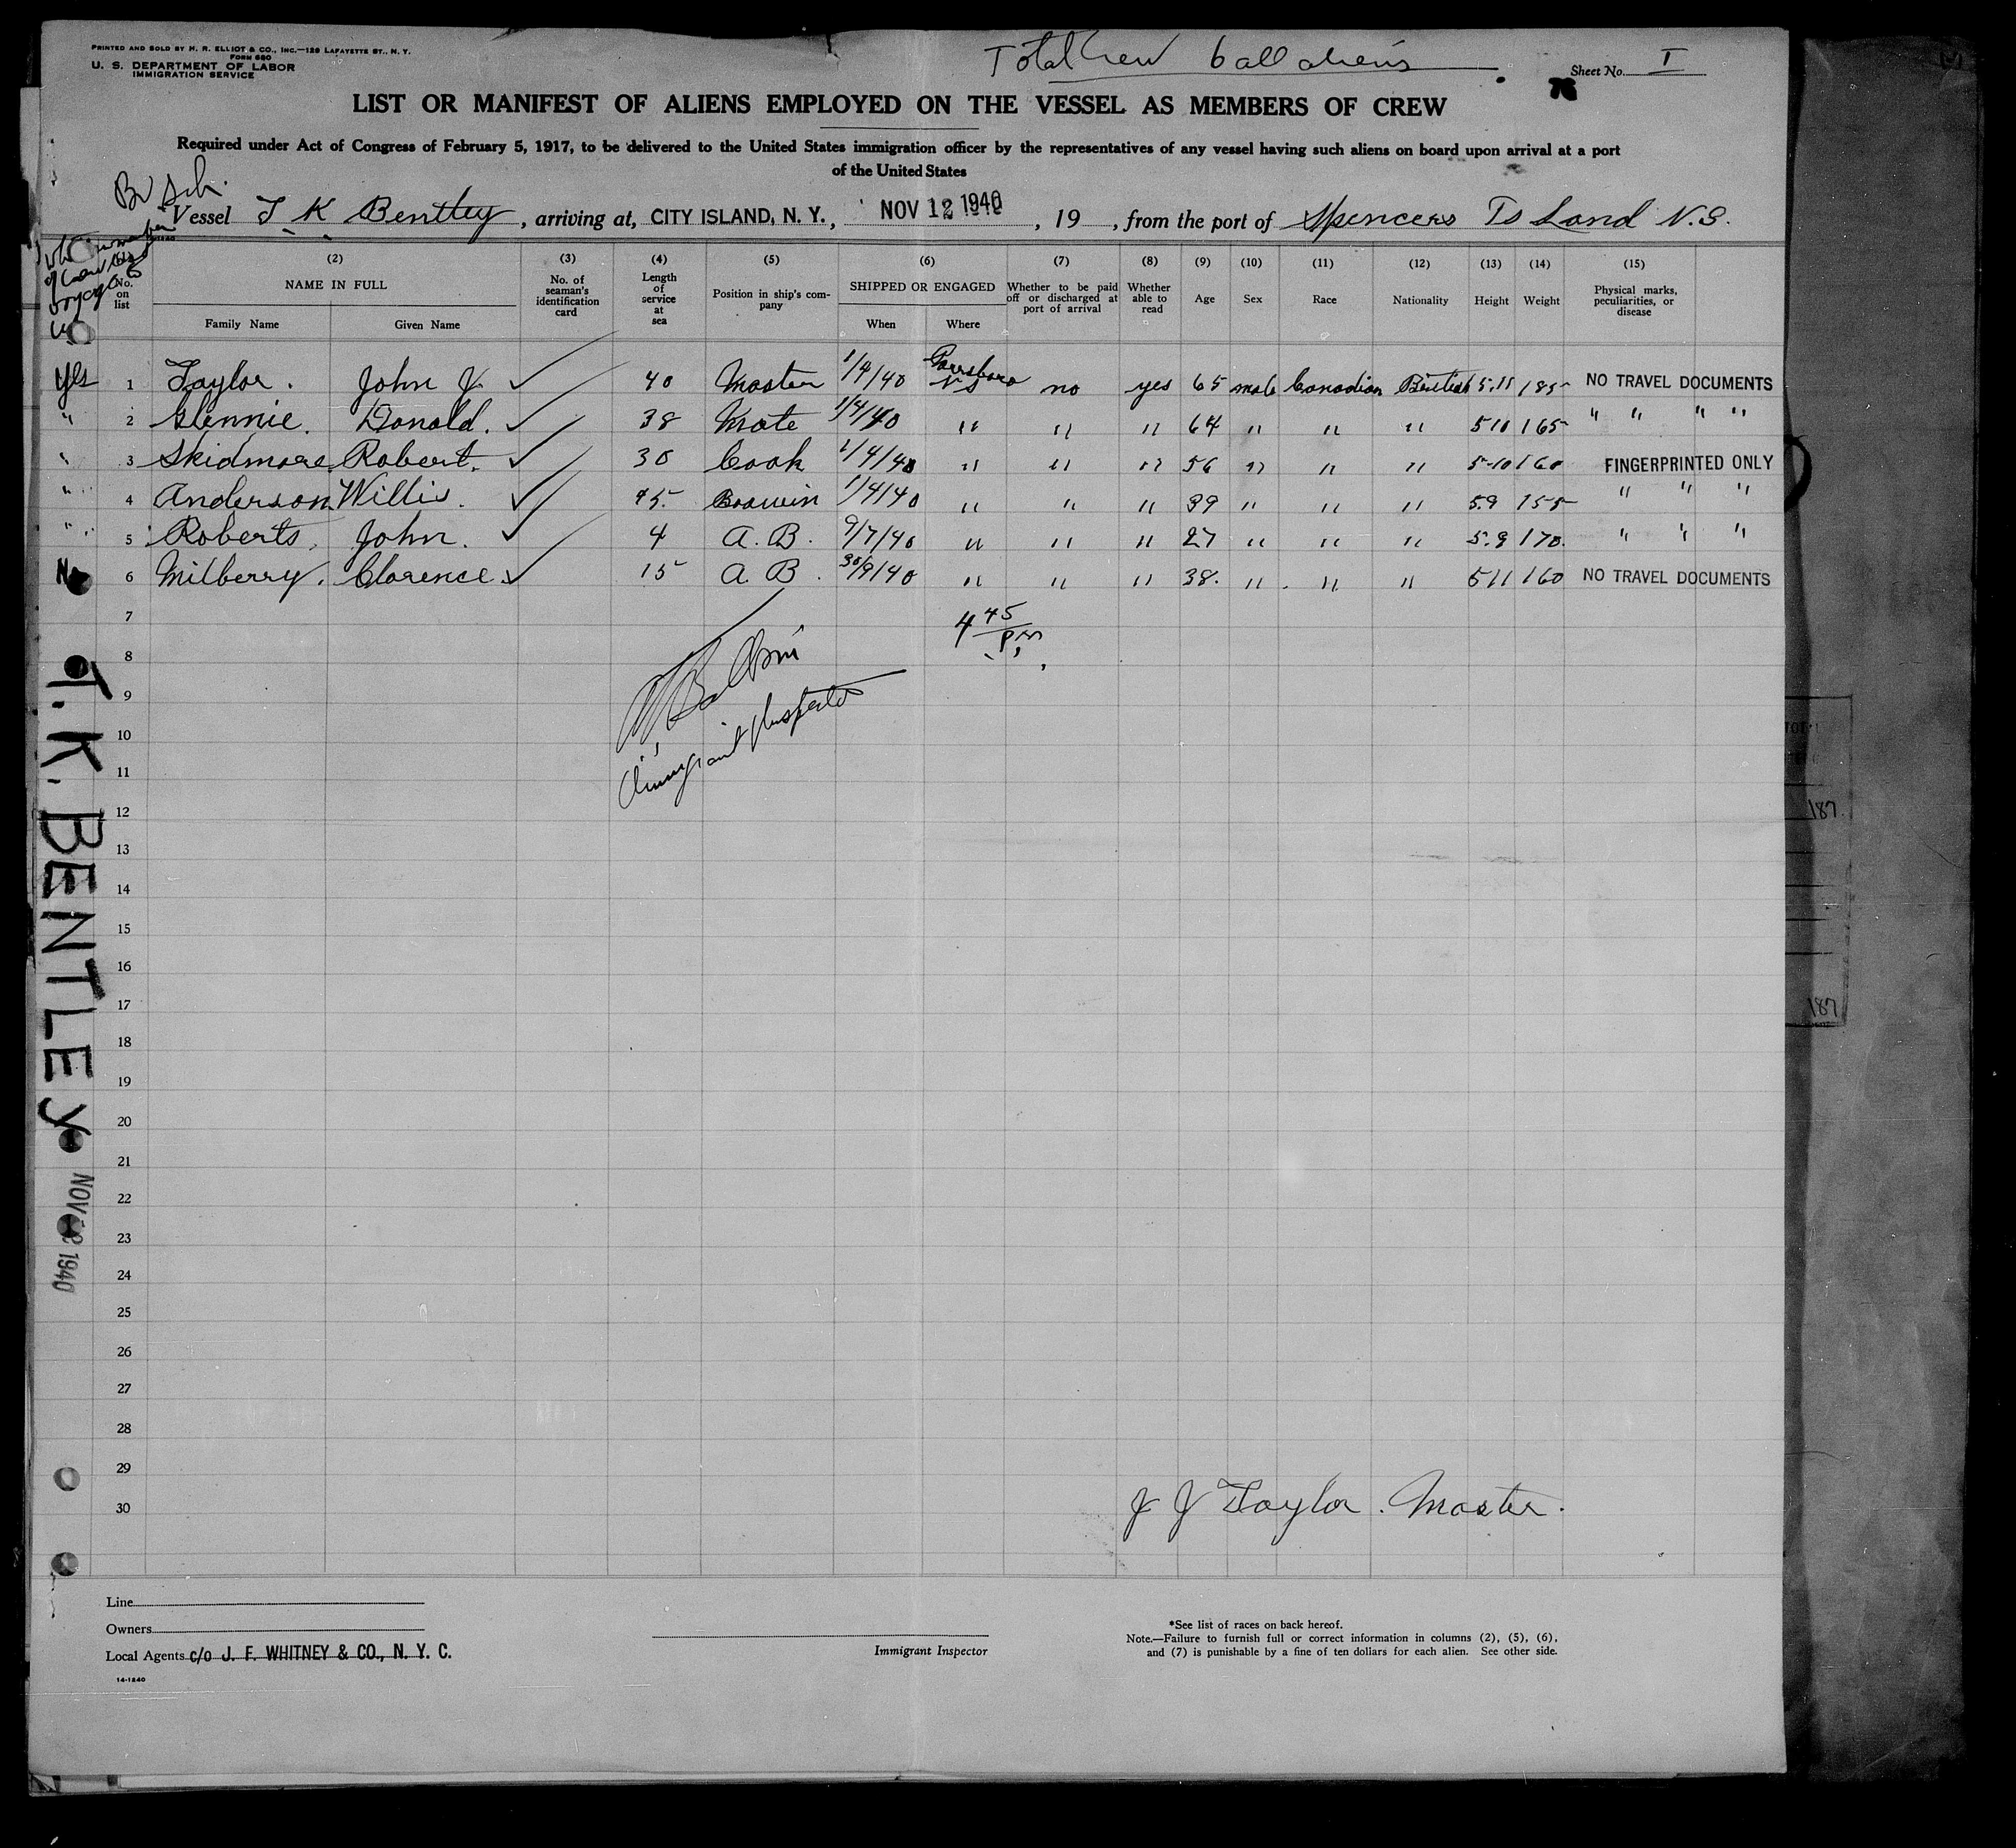 PRINTED AND SOLD BY H. R. ELLIOT & CO., INC.—129 LAFAYETTE ST., N. Y.
FORM 680
U. S. DEPARTMENT OF LABOR
IMMIGRATION SERVICE
Total Crew 6 all aliens
Sheet No. I
76
LIST OR MANIFEST OF ALIENS EMPLOYED ON THE VESSEL AS MEMBERS OF CREW
Required under Act of Congress of February 5, 1917, to be delivered to the United States immigration officer by the representatives of any vessel having such aliens on board upon arrival at a port
of the United States
Br Sch.
Vessel T K Bentley, arriving at, CITY ISLAND, N. Y., NOV 12 1940, 19 , from the port of Spencers Island N.S.
(2) (3) (4) (5) (6) (7) (8) (9) (10) (11) (12) (13) (14) (15)
No. on list NAME IN FULL Family Name Given Name No. of seaman's identification card Length of service at sea Position in ship's company SHIPPED OR ENGAGED When Where Whether to be paid off or discharged at port of arrival Whether able to read Age Sex Race Nationality Height Weight Physical marks, peculiarities, or disease
Yes 1 Taylor. John J. ✓ 40 Master 1/4/40 Parrsboro NS no yes 65 male Canadian British 5.11 185 NO TRAVEL DOCUMENTS
" 2 Glennie. Donald. ✓ 38 Mate 1/4/40 " " " 64 " " " 5 10 165 " " " "
" 3 Skidmore. Robert. ✓ 30 Cook 1/4/40 " " " 56 " " " 5-10 160 FINGERPRINTED ONLY
" 4 Anderson. Willis. ✓ Boswin 1/4/40 " " " 39 " " " 5.9 155 " " "
" 5 Roberts. John. ✓ 4 A. B. 9/7/40 " " " 27 " " " 5.9 170. " " "
No 6 Milberry. Clarence. ✓ 15 A. B. 30/9/40 " " " 38. " " " 5 11 160 NO TRAVEL DOCUMENTS
7
4 45 PM
8
9
Immigrant Inspector
10
11
12
13
14
15
16
17
18
19
20
21
22
23
24
25
26
27
28
29
30
J J Taylor. Master.
T. K. BENTLEY
NOV 12 1940
187
187
Line
Owners
Local Agents c/o J. F. WHITNEY & CO., N. Y. C.
14-1240
Immigrant Inspector
*See list of races on back hereof.
Note.—Failure to furnish full or correct information in columns (2), (5), (6),
and (7) is punishable by a fine of ten dollars for each alien. See other side.